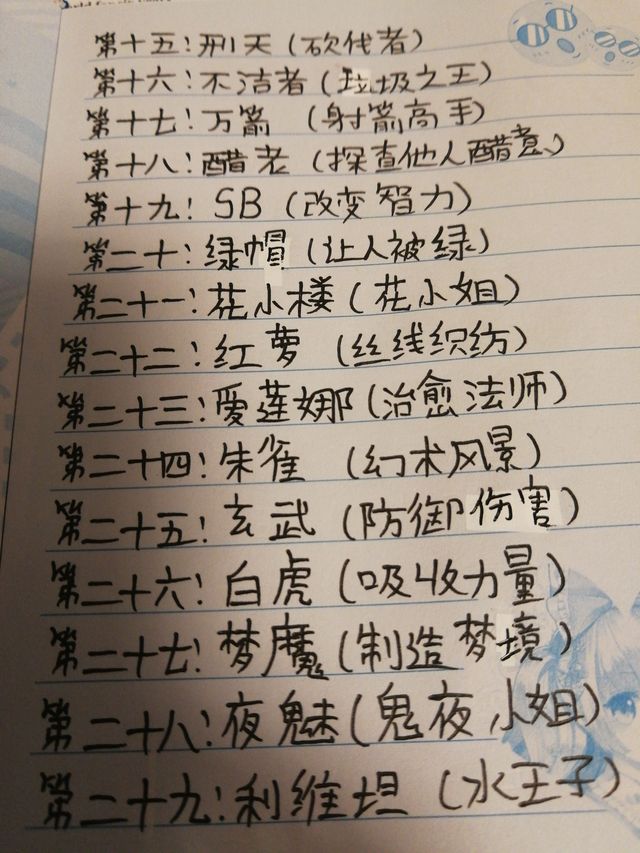 第十五：刑天（砍伐者）
第十六：不洁者（垃圾之王）
第十七：万箭（射箭高手）
第十八：醋老（探查他人醋意）
第十九：SB（改变智力）
第二十：绿帽（让人被绿）
第二十一：花小楼（花小姐）
第二十二：红萝（丝线织纺）
第二十三：爱莲娜（治愈法师）
第二十四：朱雀（幻术风景）
第二十五：玄武（防御伤害）
第二十六：白虎（吸收力量）
第二十七：梦魔（制造梦境）
第二十八：夜魅（鬼夜小姐）
第二十九：利维坦（水王子）